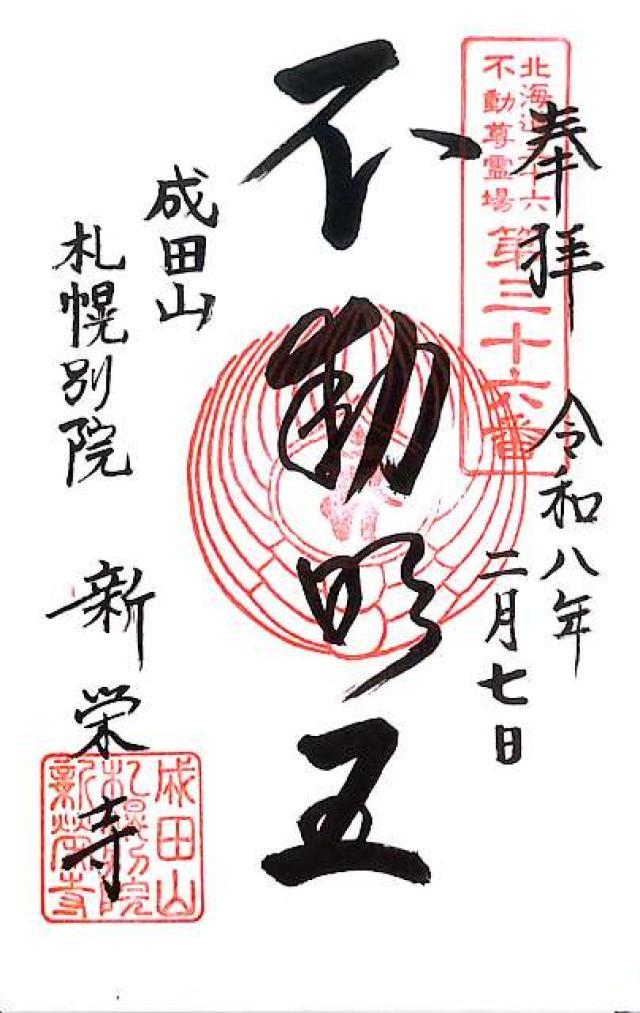 奉拝
令和八年
二月七日
北海道三十六
不動尊霊場
第三十六番
不動明王
成田山
札幌別院
新栄寺
成田山
札幌別院
新栄寺